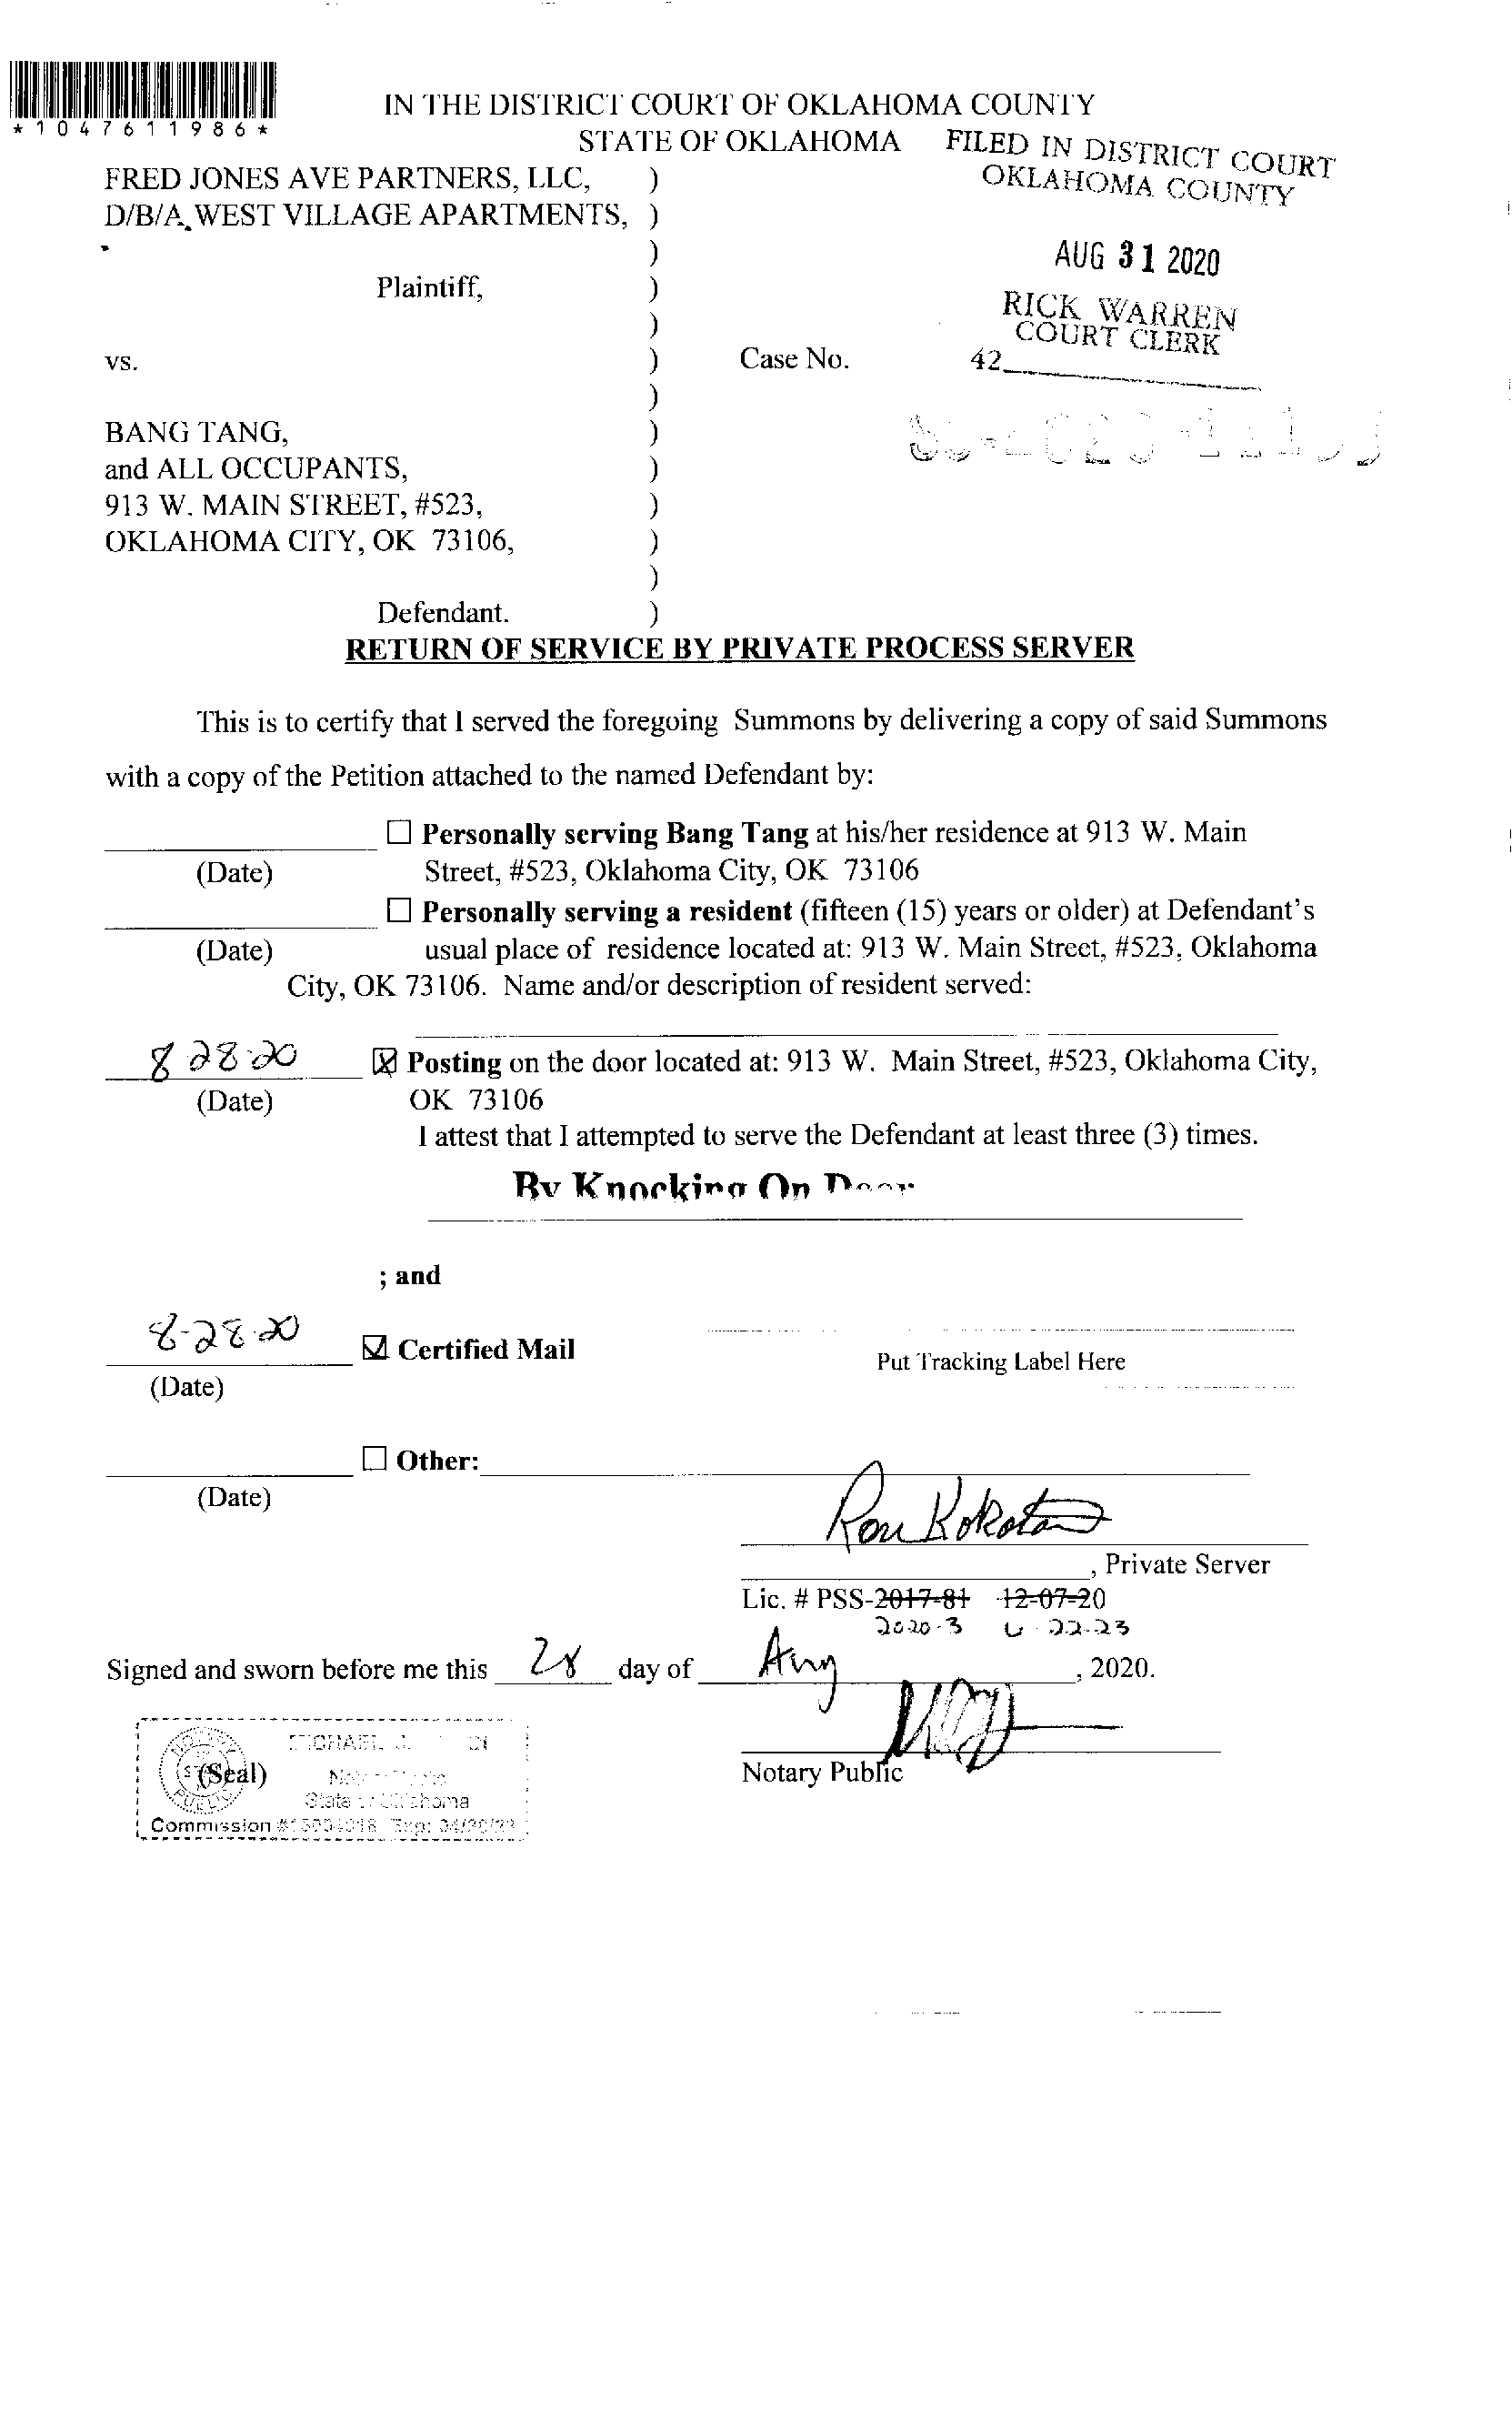 *1047611986*
IN THE DISTRICT COURT OF OKLAHOMA COUNTY
STATE OF OKLAHOMA
FILED IN DISTRICT COURT
OKLAHOMA COUNTY
FRED JONES AVE PARTNERS, LLC, )
D/B/A WEST VILLAGE APARTMENTS, )
)
AUG 31 2020
Plaintiff, )
RICK WARREN
COURT CLERK
)
vs. ) Case No. 42
)
BANG TANG, )
and ALL OCCUPANTS, )
913 W. MAIN STREET, #523, )
OKLAHOMA CITY, OK 73106, )
)
Defendant. )
RETURN OF SERVICE BY PRIVATE PROCESS SERVER
This is to certify that I served the foregoing Summons by delivering a copy of said Summons
with a copy of the Petition attached to the named Defendant by:
☐ Personally serving Bang Tang at his/her residence at 913 W. Main
(Date) Street, #523, Oklahoma City, OK 73106
☐ Personally serving a resident (fifteen (15) years or older) at Defendant's
(Date) usual place of residence located at: 913 W. Main Street, #523, Oklahoma
City, OK 73106. Name and/or description of resident served:
8 28 20 ☒ Posting on the door located at: 913 W. Main Street, #523, Oklahoma City,
(Date) OK 73106
I attest that I attempted to serve the Defendant at least three (3) times.
By Knocking On Door
; and
8-28-20 ☑ Certified Mail
Put Tracking Label Here
(Date)
☐ Other:
(Date)
, Private Server
Lic. # PSS-2017-81 12-07-20
2020-3 22-23
Signed and sworn before me this 28 day of Aug, 2020.
(Seal)
Notary Public
State Oklahoma
Commission
Notary Public